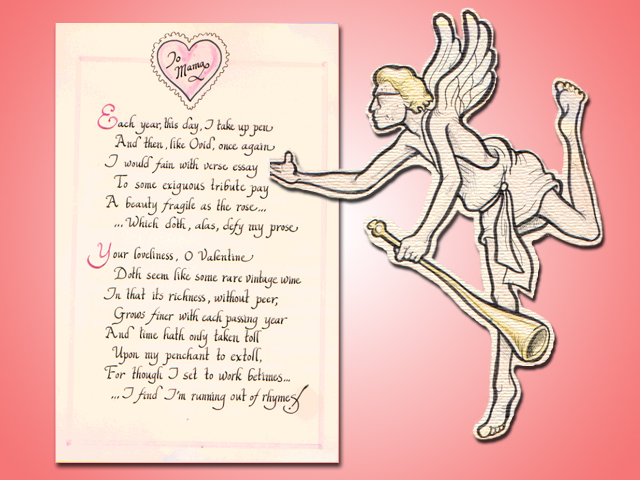 To
Mama
Each year, this day, I take up pen
And then, like Ovid, once again
I would fain with verse essay
To some exiguous tribute pay
A beauty fragile as the rose...
...Which doth, alas, defy my prose
Your loveliness, O Valentine
Doth seem like some rare vintage wine
In that its richness, without peer,
Grows finer with each passing year
And time hath only taken toll
Upon my penchant to extoll,
For though I set to work betimes...
...I find I'm running out of rhymes